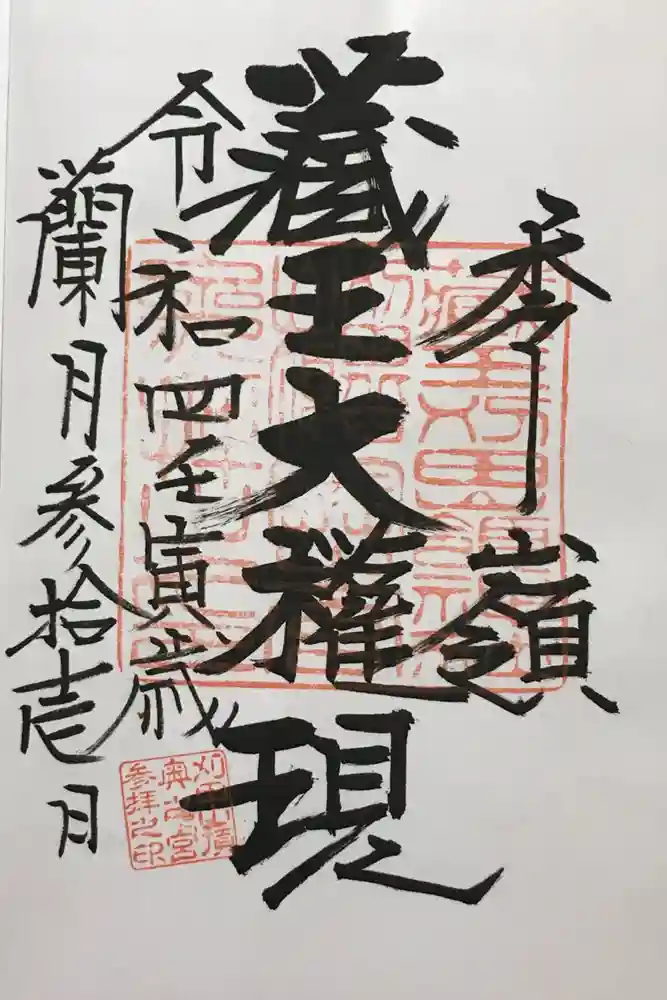 秀嶺
蔵王大権現
令和四壬寅歳
蘭月参拾壱日
刈田嶺
奥之宮
参拝之印